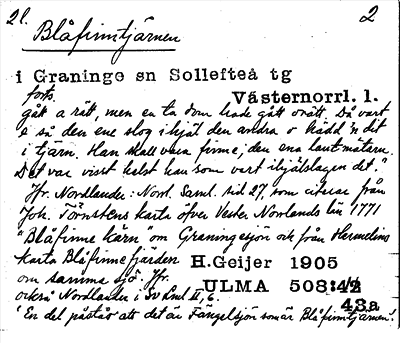 2 l. 2
Blåfinntjärnen
i Graninge sn Sollefteå tg
forts. Västernorrl. l.
gått a rätt, men en ta dom hade gått orätt. Då vart
e så den ene slog ihjäl den andra o hädd 'n dit
i tjärn. Han skall vara finne, den ena lautmätarn.
Det var visst helst han som vart ihjälslagen det."
Jfr. Nordlander: Norrl. Saml. sid 27, som citerar från
Joh. Törnstens karta öfver Vester Norlands län 1771
"Blåfinne kärn" om Graningesjön och från Hermelins
karta Blåfinnefjärden H.Geijer 1905
om samma sjö. Jfr. ULMA 508:42
också Nordlander i Sv Lml II, 6. 43a
'En del påstår att det är Fängelsjön som är Blåfinntjärnen'.